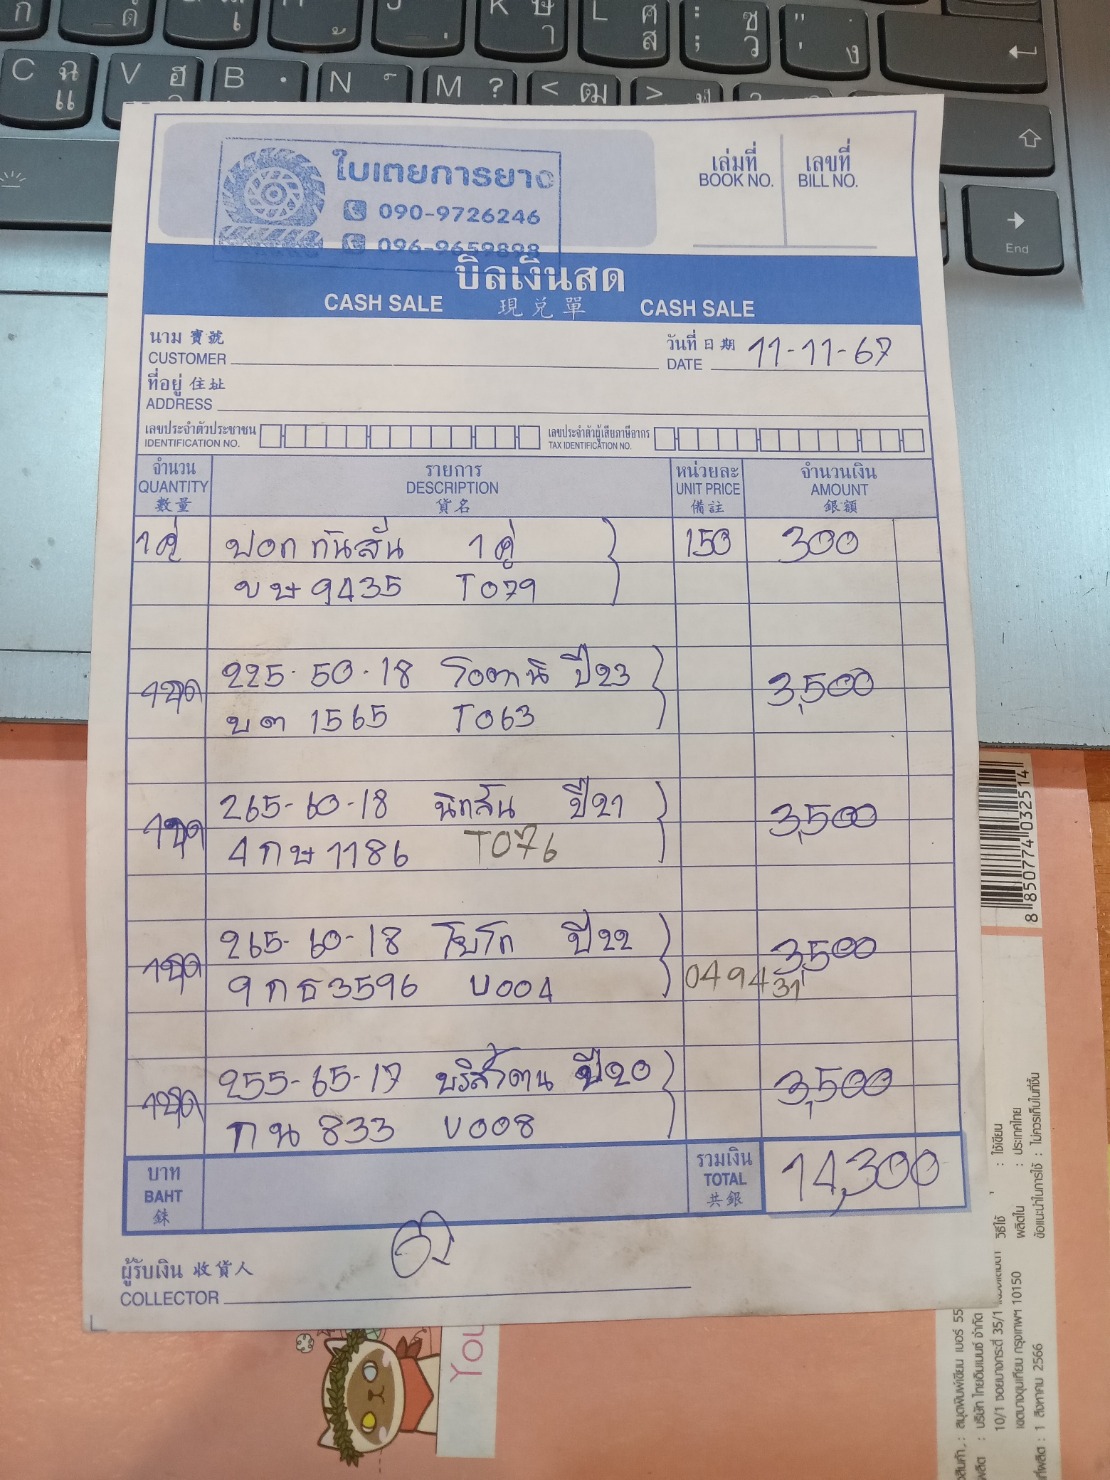 ใบเตยการยาง
090-9726246
096-9659898
เล่มที่ เลขที่
BOOK NO. BILL NO.
บิลเงินสด
CASH SALE 現兌單 CASH SALE
นาม 寶號
CUSTOMER
วันที่ 日期
DATE 11-11-67
ที่อยู่ 住址
ADDRESS
เลขประจำตัวประชาชน
IDENTIFICATION NO.
เลขประจำตัวผู้เสียภาษีอากร
TAX IDENTIFICATION NO.
จำนวน รายการ หน่วยละ จำนวนเงิน
QUANTITY DESCRIPTION UNIT PRICE AMOUNT
數量 貨名 備註 銀額
1 คู่ ปอกกันสั่น 1 คู่ 150 300
ขษ 9435 T079
225-50-18 โอตานิ ปี23
1ชุด 3,500
บต 1565 T063
265-60-18 นิทสัน ปี21
1ชุด 3,500
4 กษ 1186 T076
265-60-18 โยโก ปี22
1ชุด 3,500
9 กธ 3596 U004 049431
255-65-17 บริสโตน ปี20
1ชุด 3,500
กน 833 U008
บาท รวมเงิน
BAHT TOTAL 14,300
銖 共銀
ผู้รับเงิน 收貨人
COLLECTOR
You
8 850774 032514